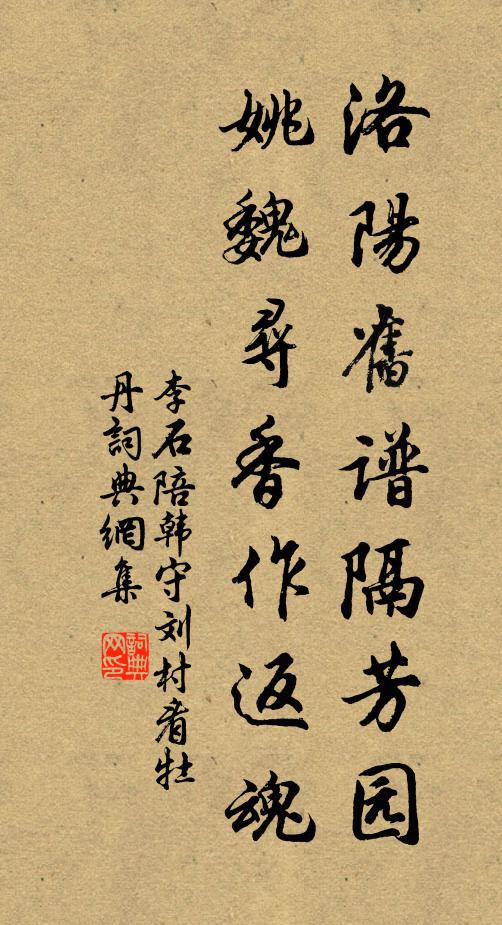 洛陽舊谱隔芳园
姚魏尋香作返魂
李石陪韩守刘村看牡
丹詞典網集
詞典网印